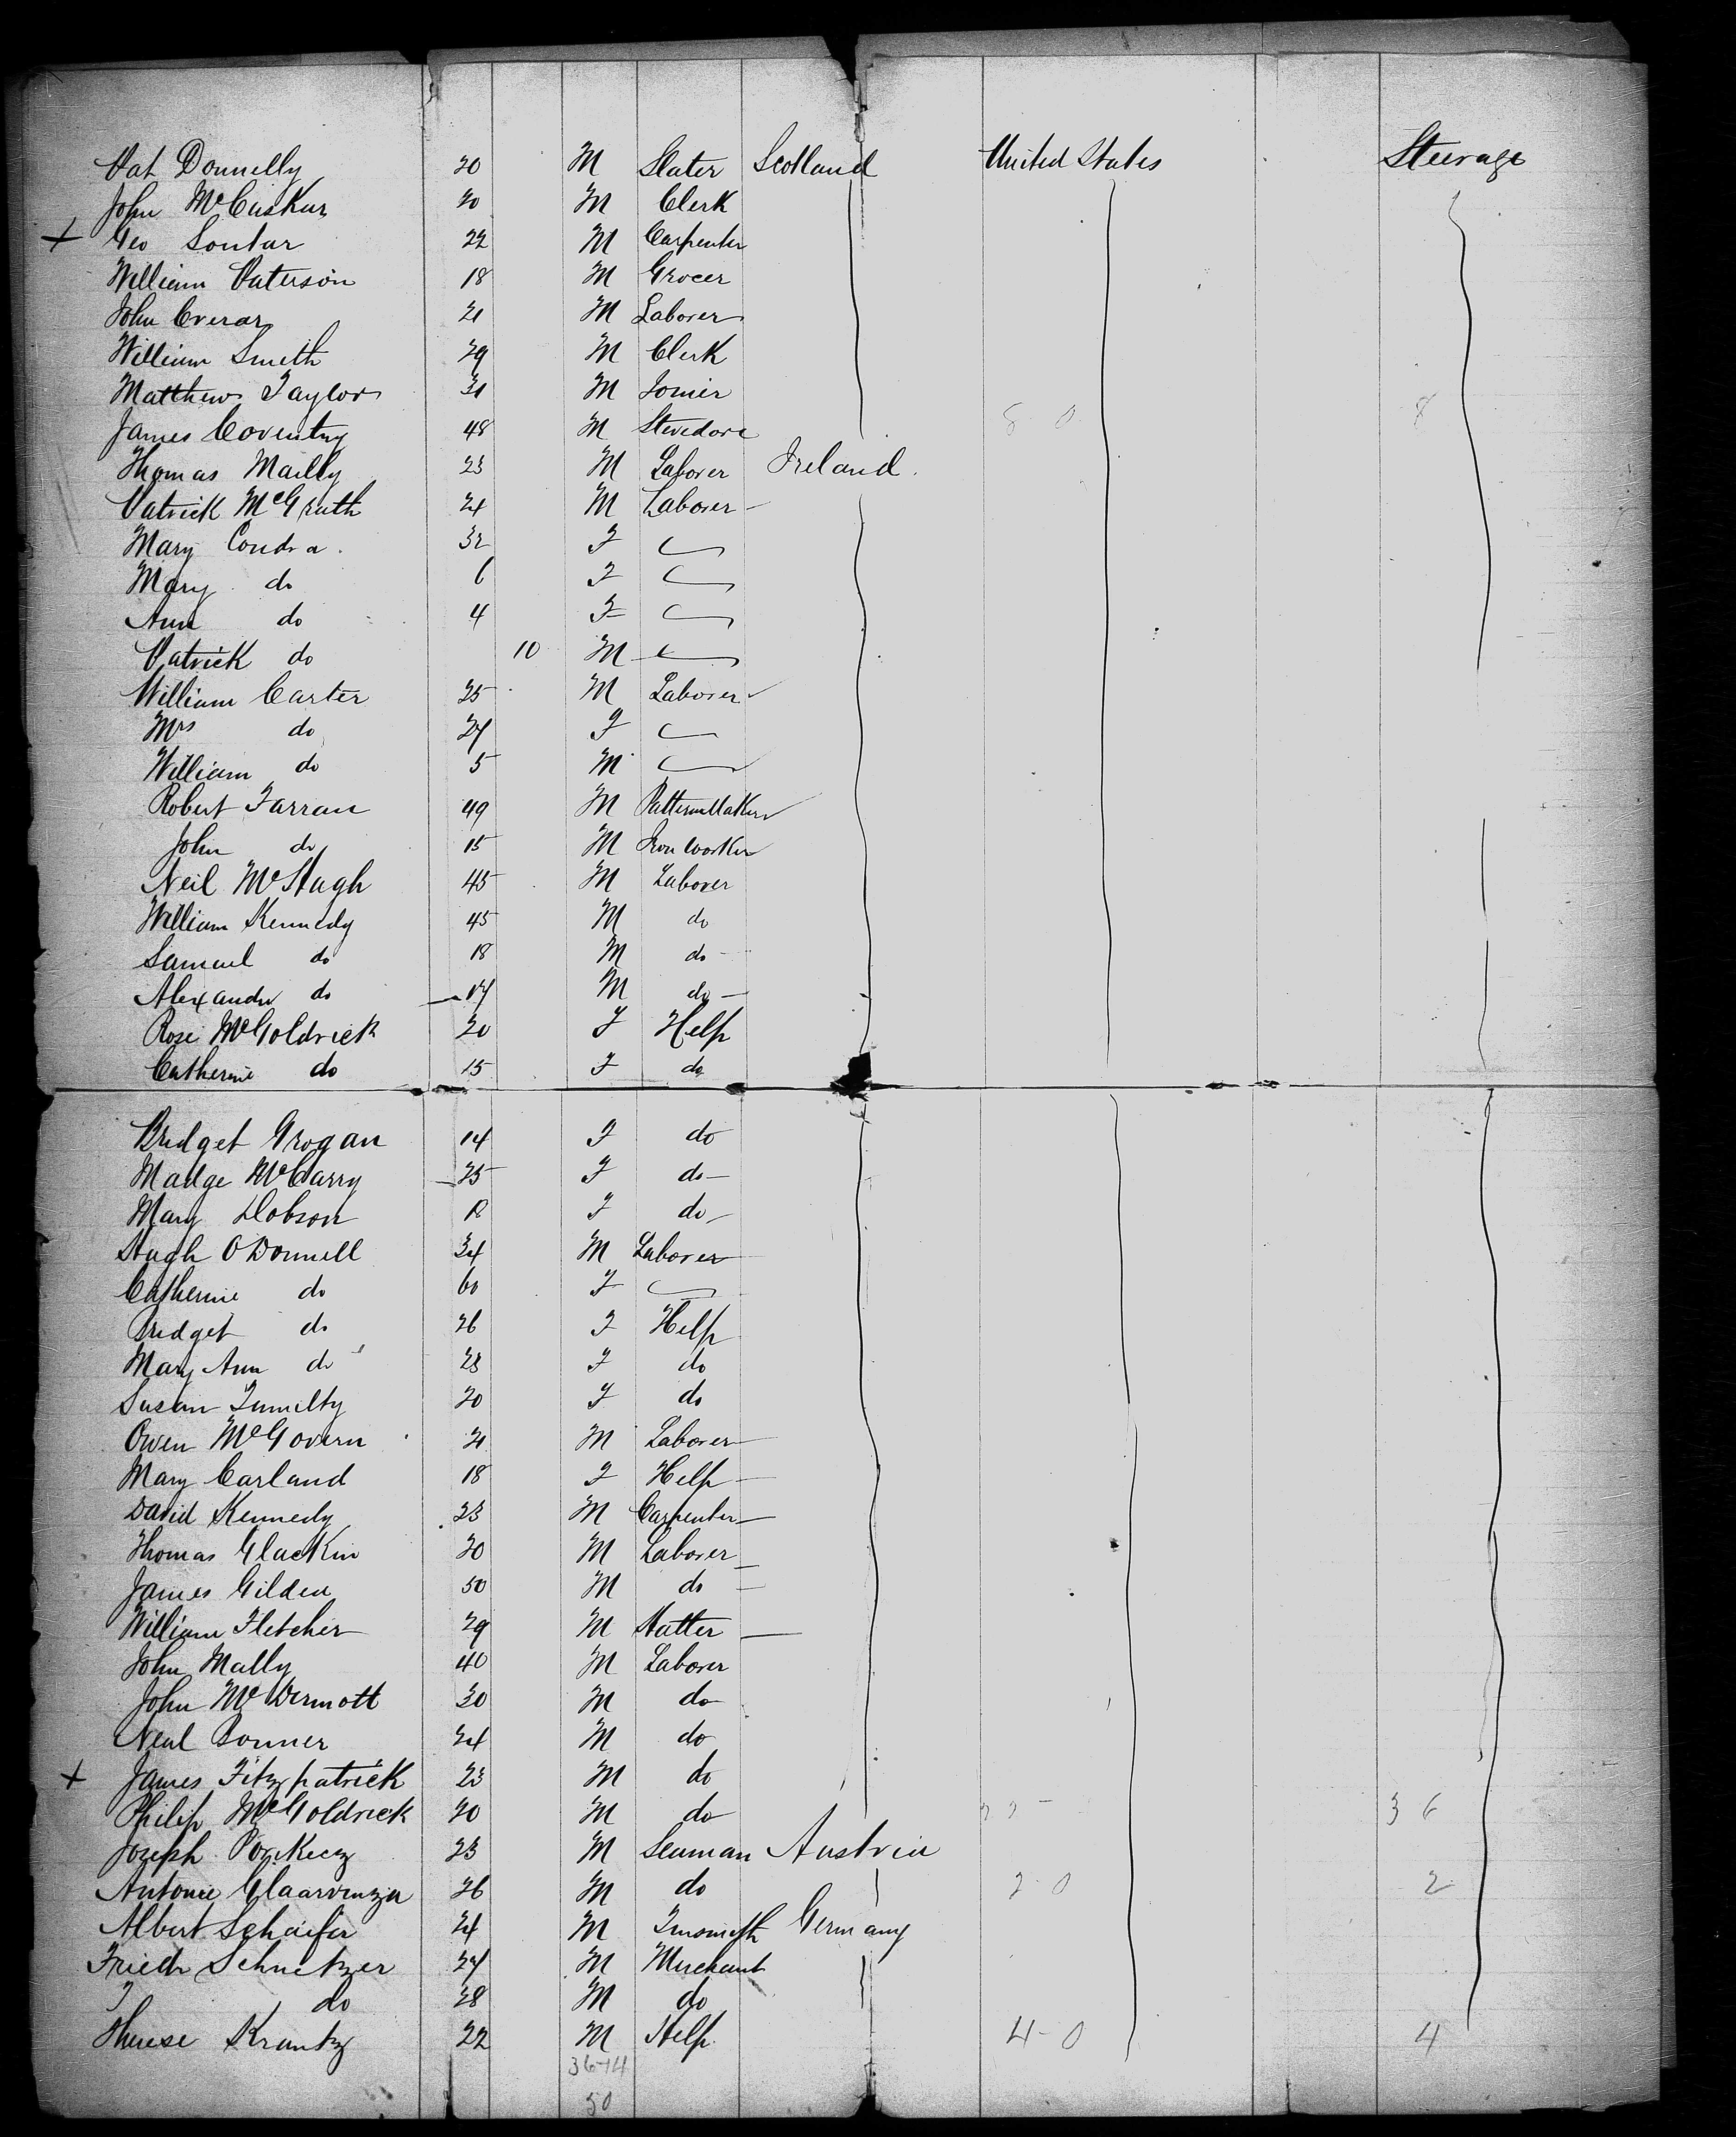 Pat Donnelly 20 M Slater Scotland United States Steerage
John McCusker 20 M Clerk
+ Geo Soutar 22 M Carpenter
William Paterson 18 M Grocer
John Crerar 21 M Laborer
William Smith 29 M Clerk
Matthew Taylor 31 M Joiner
James Coventry 48 M Stevedore 8 0 8
Thomas Mailly 23 M Laborer Ireland.
Patrick McGrath 24 M Laborer
Mary Condra. 32 F
Mary do 6 F
Ann do 4 F
Patrick do 10 M
William Carter 25 M Laborer
Mrs do 24 F
William do 5 M
Robert Farran 49 M PatternMaker
John do 15 M Iron Worker
Neil McHugh 45 M Laborer
William Kennedy 45 M do
Samuel do 18 M do
Alexander do 14 M do
Rose McGoldrick 20 F Help
Catherine do 15 F do
Bridget Grogan 14 F do
Madge McGarry 25 F do
Mary Dobson F do
Hugh O'Donnell 34 M Laborer
Catherine do 60 F
Bridget do 26 F Help
Mary Ann do 23 F do
Susan Tumilty 20 F do
Owen McGovern 21 M Laborer
Mary Carland 18 F Help
David Kennedy 23 M Carpenter
Thomas Glackin 20 M Laborer
James Gilden 50 M do
William Fletcher 29 M Hatter
John Mally 40 M Laborer
John McDermott 30 M do
Neal Bonner 24 M do
+ James Fitzpatrick 23 M do
Philip McGoldrick 20 M do 36
Joseph 23 M Seaman Austria
Antonie 26 M do 2 0 2
Albert Schaifer 24 M Tinsmith Germany
Friedr Schnetzer 24 M Merchant
do 28 M do
Therese Krantz 22 M Help 4-0 4
36-14
50